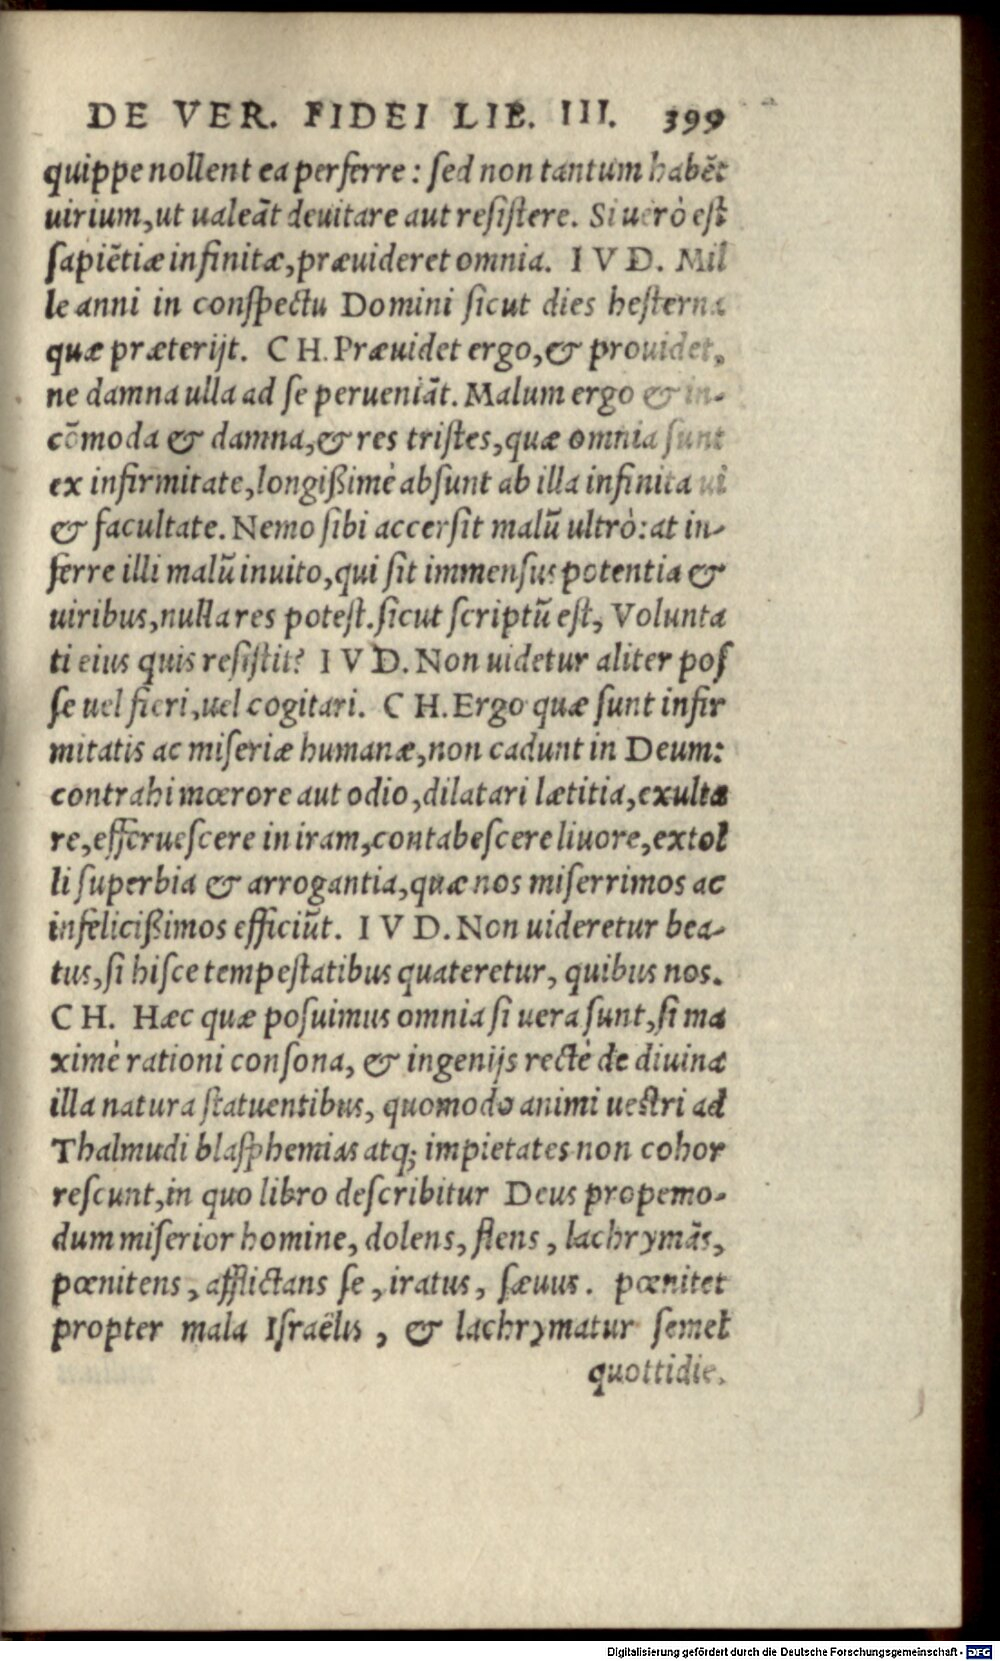 DE VER. FIDEI LIB. III. 399
quippe nollent ea perferre : sed non tantum habẽt
uirium, ut ualeãt deuitare aut resistere. Si uerò est
sapiẽtiæ infinitæ, præuideret omnia. I V D. Mil
le anni in conspectu Domini sicut dies hesterna
quæ præterijt. C H. Præuidet ergo, & prouidet,
ne damna ulla ad se perueniãt. Malum ergo & in-
cõmoda & damna, & res tristes, quæ omnia sunt
ex infirmitate, longißimè absunt ab illa infinita ui
& facultate. Nemo sibi accersit malũ ultrò: at in-
ferre illi malũ inuito, qui sit immensus potentia &
uiribus, nulla res potest. sicut scriptũ est, Volunta
ti eius quis resistit? I V D. Non uidetur aliter pos
se uel fieri, uel cogitari. C H. Ergo quæ sunt infir
mitatis ac miseriæ humanæ, non cadunt in Deum:
contrahi mœrore aut odio, dilatari lætitia, exulta
re, efferuescere in iram, contabescere liuore, extol
li superbia & arrogantia, quæ nos miserrimos ac
infelicißimos efficiũt. I V D. Non uideretur bea-
tus, si hisce tempestatibus quateretur, quibus nos.
C H. Hæc quæ posuimus omnia si uera sunt, si ma
ximè rationi consona, & ingenijs rectè de diuina
illa natura statuentibus, quomodo animi uestri ad
Thalmudi blasphemias atq; impietates non cohor
rescunt, in quo libro describitur Deus propemo-
dum miserior homine, dolens, flens, lachrymãs,
pœnitens, afflictans se, iratus, sæuus. pœnitet
propter mala Israëlis, & lachrymatur semel
quottidie.
Digitalisierung gefördert durch die Deutsche Forschungsgemeinschaft - DFG